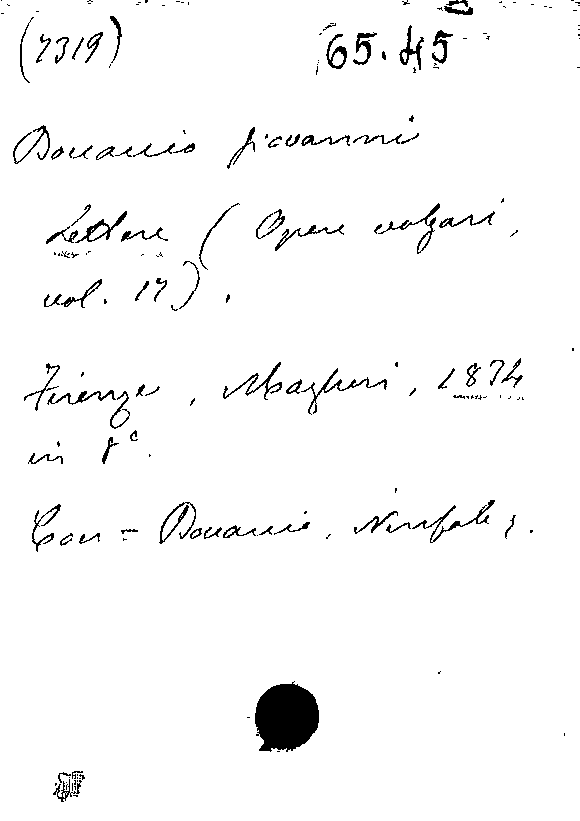 (7319) 65.45
Boccaccio Giovanni
Lettere (Opere volgari,
vol. 17).
Firenze, Magheri, 1834
in 8°.
Con = Boccaccio, Ninfale